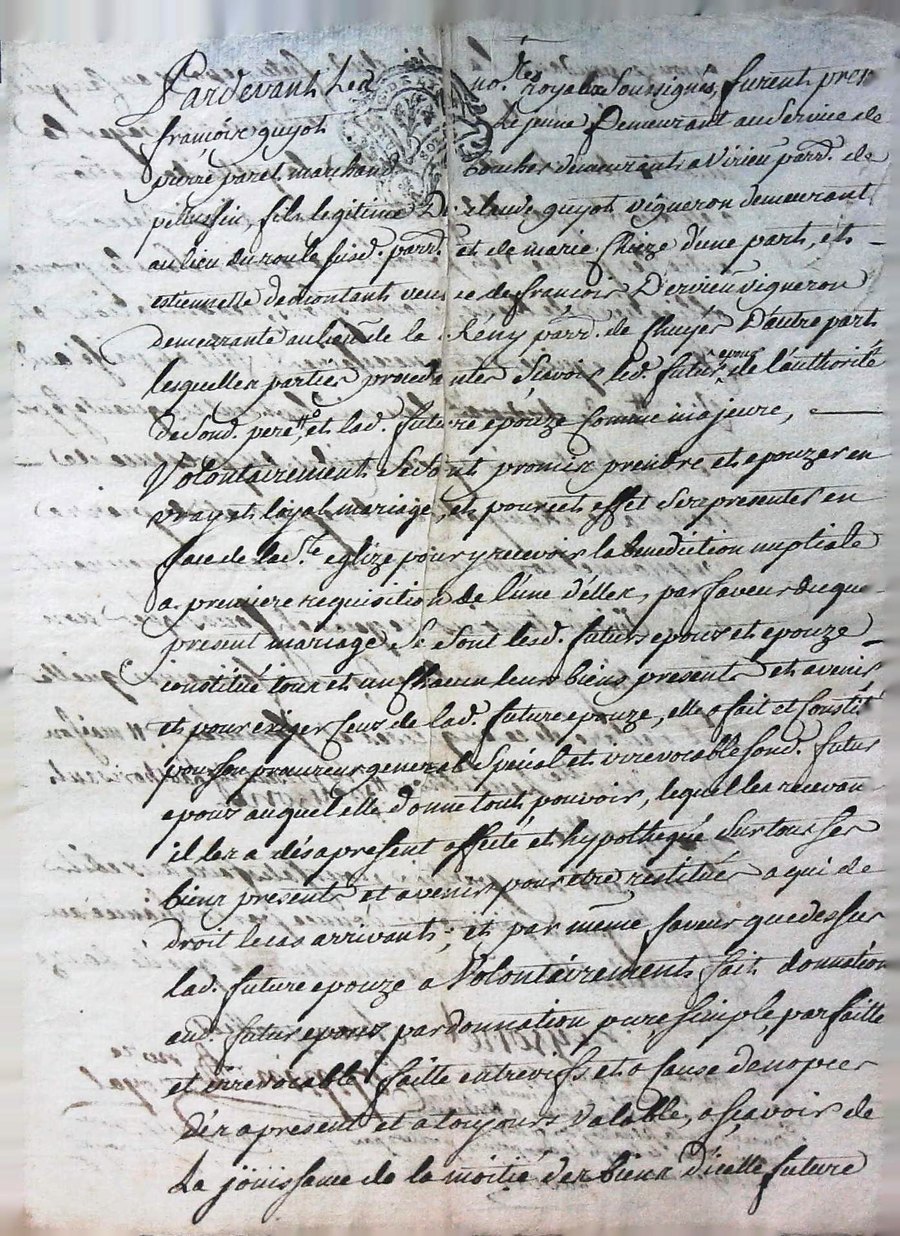 Pardevant Les no.res royaux soussignés, furent pres
francois guyot le jeune Demeurant au Service de
pierre paret marchand boucher demeurant a Virieu parr.e de
pellussin, fils legitime De claude guyot vigneron demeurant
au lieu du roule susd. parr.e et de marie Chize d'une part, et
estiennette demontant veuve de francois D'ervieu vigneron
demeurante au lieu de la Rémy parr.e de Chuyer D'autre part
lesquelles parties procedantes Scavoir led. futur epoux de l'authorité
de Sond. pere, et lad. future epouze Comme majeure,
Volontairement Se sont promis prendre et epouzer en
vray et loyal mariage, et pour cet effet Se presenter en
face de la S.te eglize pour y recevoir la benediction nuptiale
a premiere requisition de l'une d'elles, par faveur duque
present mariage Se Sont lesd. futurs epoux et epouze
constitué tous et un Chacun leurs biens presents et avenir
et pour exiger Ceux de lad. future epouze, elle a fait et Constit
pour Son procureur general Special et irrevocable Sond. futur
epoux auquel elle donne tout pouvoir, lequel les recevan
il les a dés apresent affecté et hypothequé Sur tous Ses
biens presents et avenir pour etre restitués a qui de
droit le cas arrivant; et par même faveur que dessus
lad. future epouze a Volontairement fait donnation
aud. futur epoux par donnation pure Simple, parfaitte
et irrevocable faitte entre vifs et a Cause de nopces
dés apresent et a toujours Valable, a Scavoir de
La jouissance de la moitié des biens D'icelle future